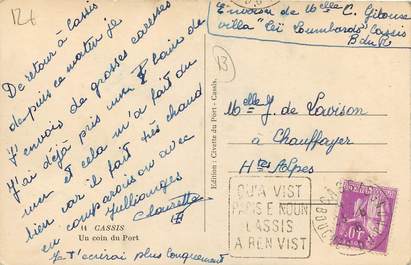 12€
Envoi de Melle C. Gilouse
villa "Lei Lombards" Cassis
B du R
De retour à Cassis
depuis ce matin je
t'envoie de grosses caresses
J'ai déjà pris mon bain de
mer et cela m'a fait du
bien car il fait très chaud
en comparaison ou avec
Jullianges
Clausette
Je t'écrirai plus longuement
14 CASSIS
Un coin du Port
Edition : Civette du Port - Cassis.
13
Melle J. de Lavison
à Chauffayer
Htes Alpes
QU'A VIST
PARIS E NOUN
CASSIS
A REN VIST